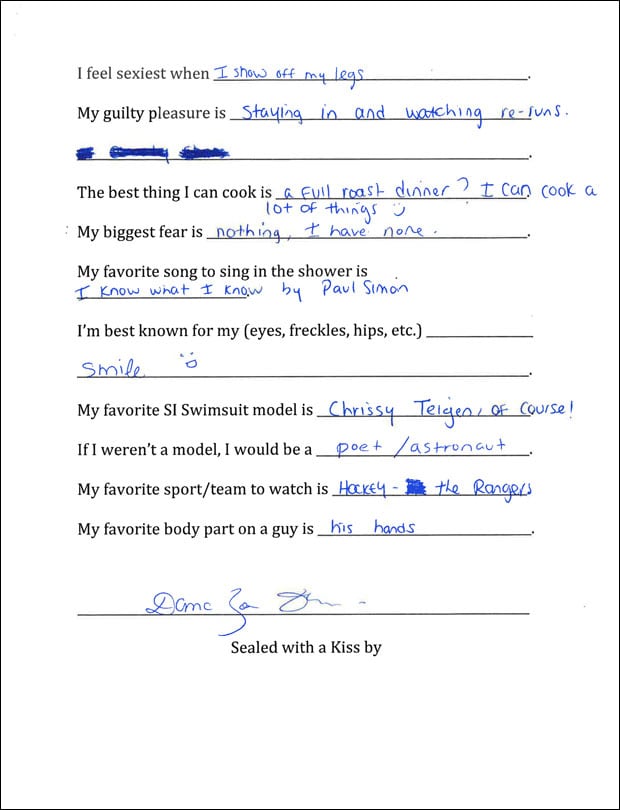 I feel sexiest when I show off my legs.
My guilty pleasure is Staying in and watching re-runs.
The best thing I can cook is a full roast dinner? I can cook a
lot of things :)
My biggest fear is nothing, I have none.
My favorite song to sing in the shower is
I know what I know by Paul Simon
I'm best known for my (eyes, freckles, hips, etc.)
Smile :D
My favorite SI Swimsuit model is Chrissy Teigen, of course!
If I weren't a model, I would be a poet/astronaut.
My favorite sport/team to watch is Hockey - the Rangers
My favorite body part on a guy is his hands.
Sealed with a Kiss by